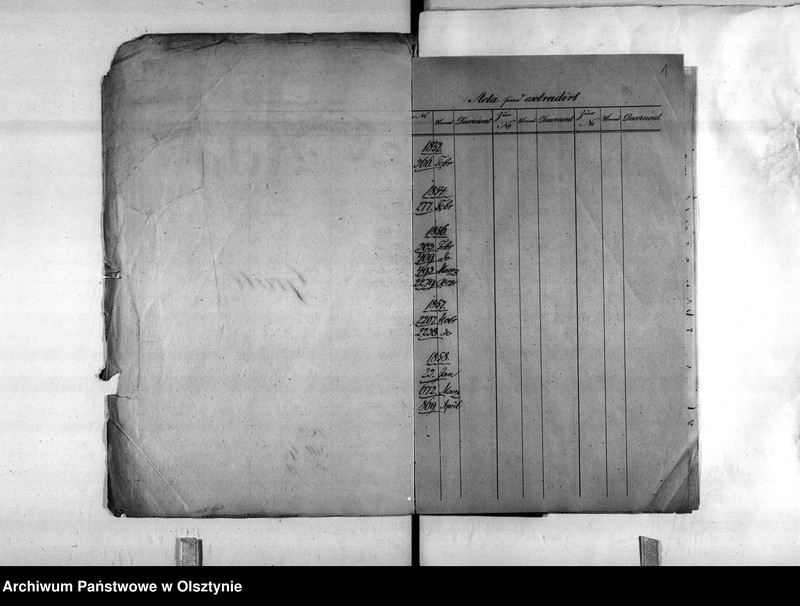 1
Acta sind extradirt
Zur No Monat Decernent Zur No Monat Decernent Zur No Monat Decernent
1852.
300. Febr
1854.
277. Febr
1856.
302. Febr
409. do
493. Maerz
2279. Octbr
1857.
2207. Novbr
2238. do
1858.
23. Jan
672. Maerz
869. April
Archiwum Państwowe w Olsztynie